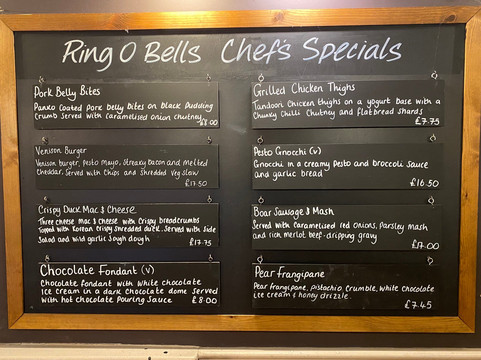 Ring O Bells Chef's Specials
Pork Belly Bites
Panko Coated Pork belly bites on black pudding
crumb served with caramelised onion chutney
£8.00
Venison Burger
Venison burger, pesto mayo, streaky bacon and melted
cheddar, served with chips and shredded veg slaw
£17.50
Crispy Duck Mac & Cheese
Three cheese mac & cheese with crispy breadcrumbs
topped with korean crispy shredded duck. Served with side
salad and wild garlic sough dough
£17.75
Chocolate Fondant (v)
Chocolate fondant with white chocolate
ice cream in a dark chocolate dome served
with hot chocolate pouring sauce
£8.00
Grilled Chicken Thighs
Tandoori chicken thighs on a yogurt base with a
chunky chilli chutney and flatbread shards
£7.75
Pesto Gnocchi (v)
Gnocchi in a creamy pesto and broccoli sauce
and garlic bread
£16.50
Boar Sausage & Mash
Served with caramelised red onions, parsley mash
and rich merlot beef-dripping gravy
£17.00
Pear Frangipane
Pear frangipane, pistachio crumble, white chocolate
ice cream & honey drizzle.
£7.45